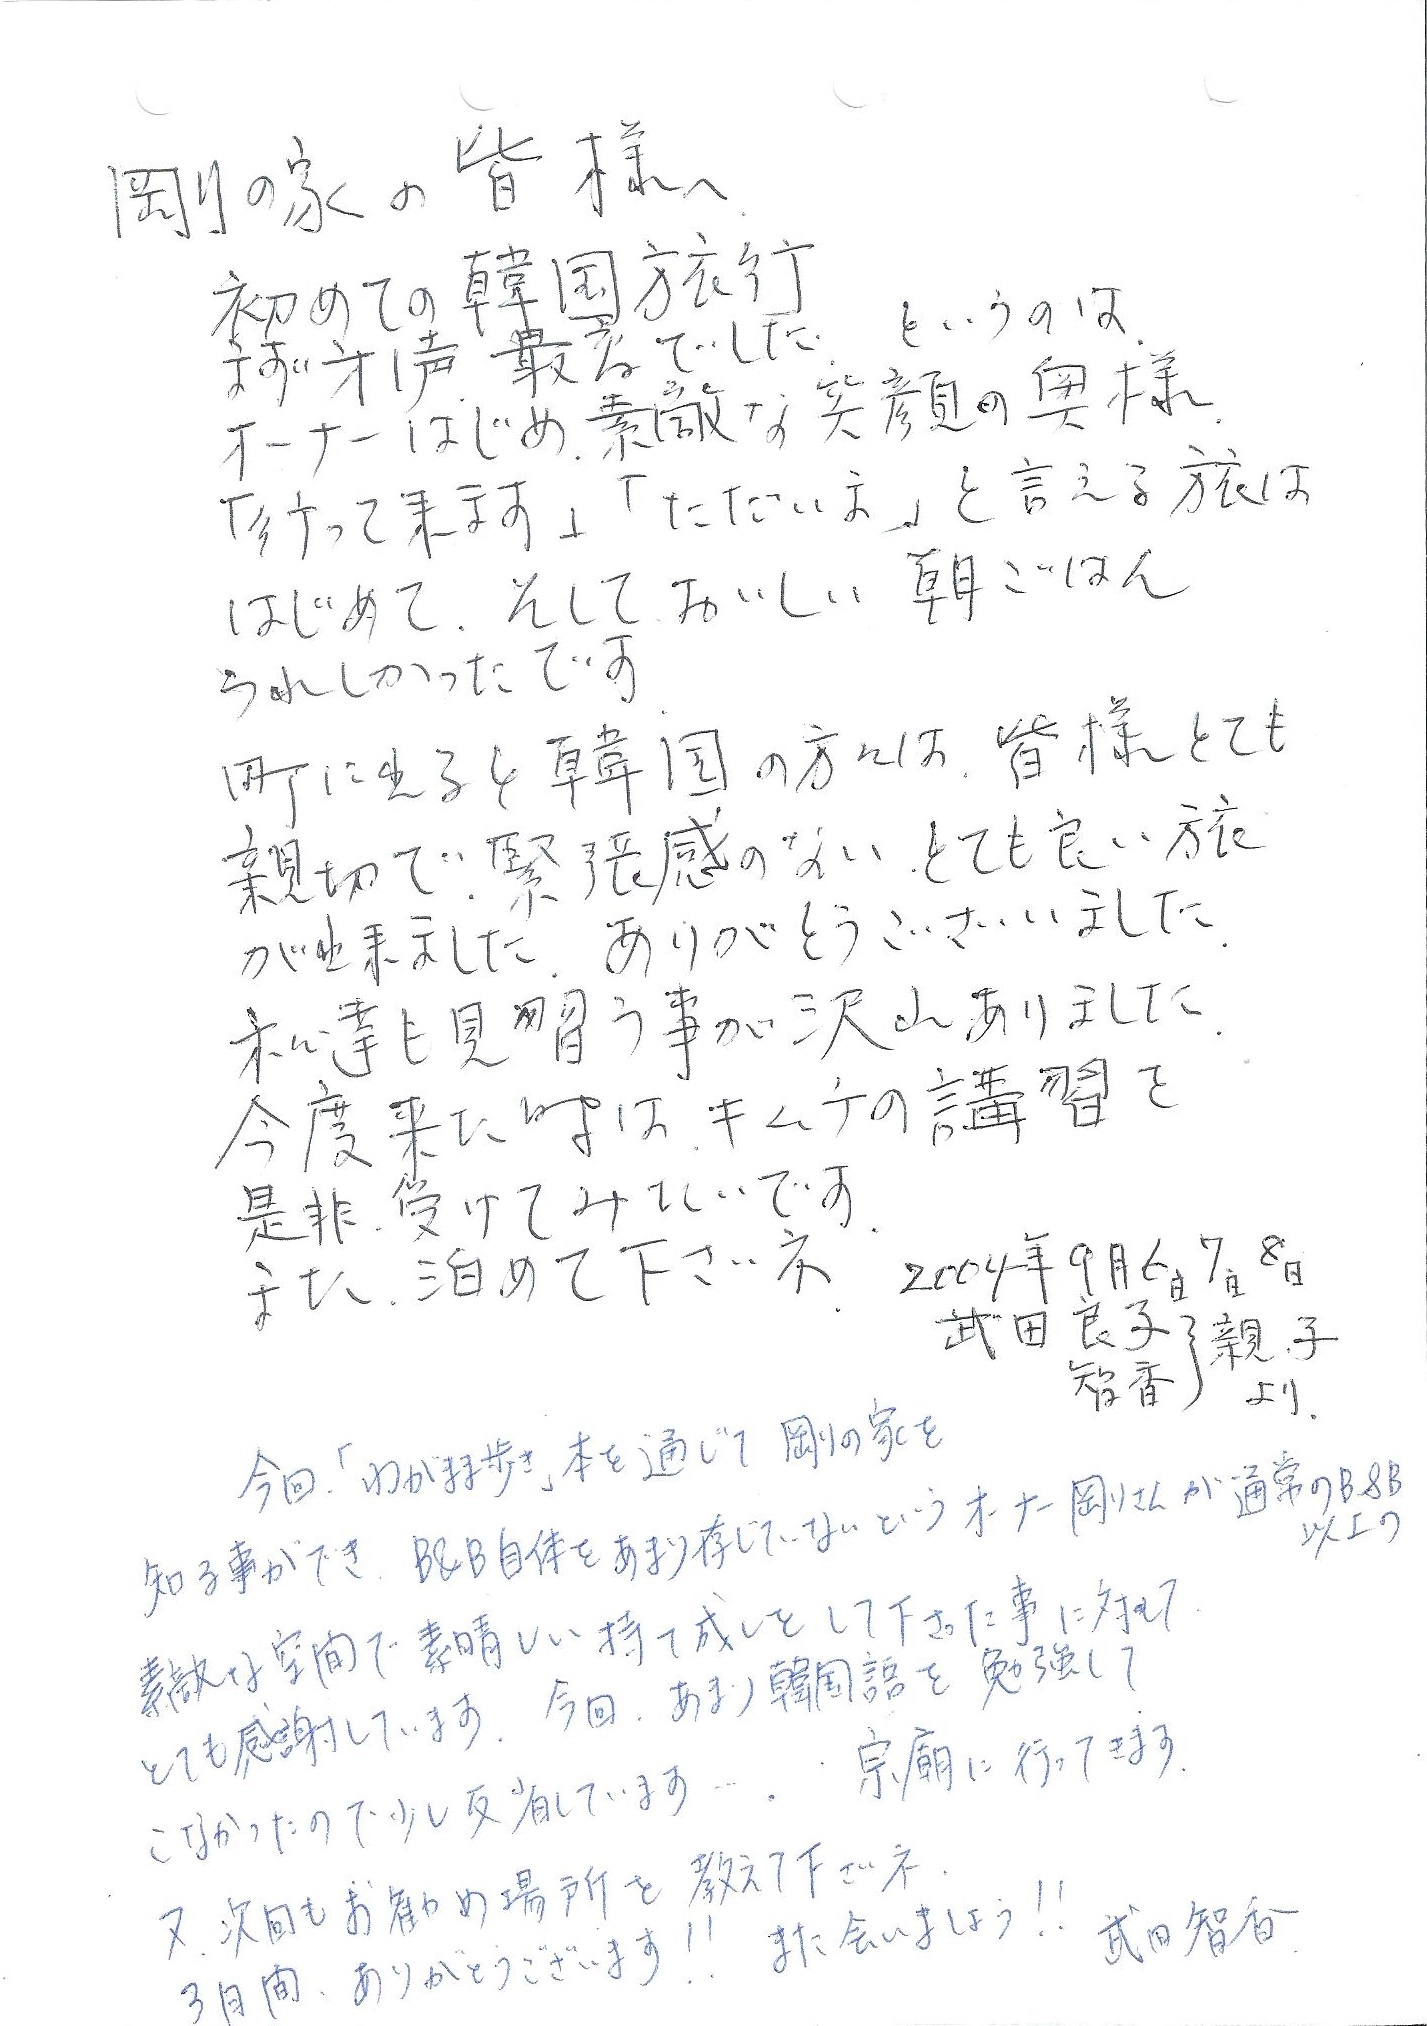 剛の家の皆様へ
初めての韓国旅行
まず才1声 最高でした. というのは.
オーナーはじめ.素敵な笑顔の奥様.
「行って来ます」「ただいま」と言える旅は
はじめて. そして おいしい 朝ごはん
うれしかったです.
町に出ると韓国の方々は.皆様とても
親切で.緊張感のない.とても良い旅
が出来ました. ありがとうございました.
私達も見習う事が沢山ありました.
今度来た時は.キムチの講習を
是非.受けてみたいです.
また.泊めて下さいネ.
2004年9月6日7日8日
武田 良子
智香 親子
より.
今回.「わがまま歩き」本を通じて 剛の家を
知る事ができ. B&B自体をあまり存じていないというオーナー剛さんが通常のB&B
以上の
素敵な空間で素晴しい持て成しをして下さった事に対して.
とても感謝しています. 今回.あまり韓国語を勉強して
こなかったので少し反省しています…. 宗廟に行ってきます.
又.次回もお勧め場所を教えて下さいネ.
3日間.ありがとうございます!! また会いましょう!! 武田智香